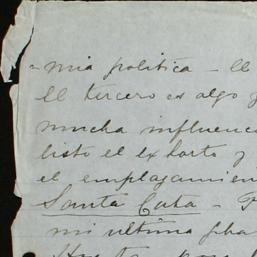 mia politica - El
El tercero es algo
mucha influenc
listo el exhorto y
el emplazamien
Santa Cata -
mi ultima fha